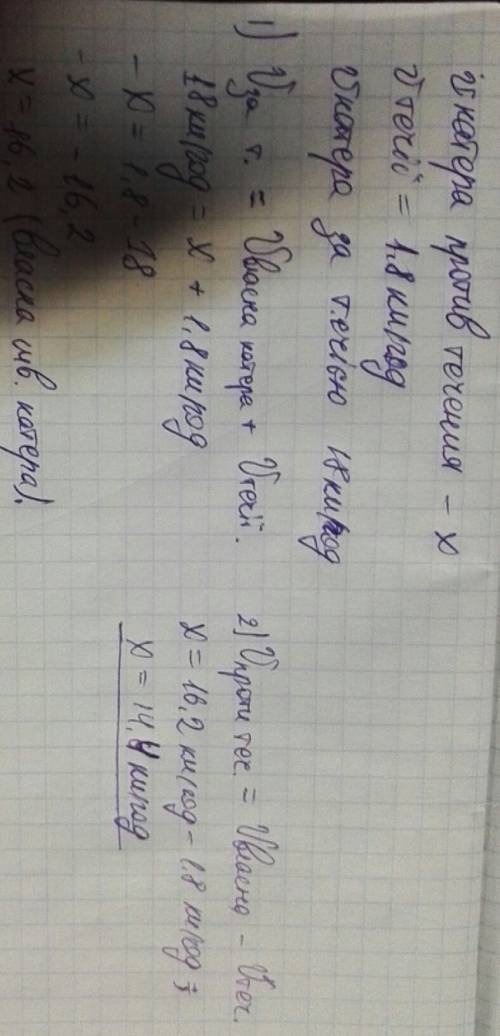 v катера против течения - x
v течії = 1,8 км/год
v катера за течією 18 км/год
1) Vза т. = Vвласна катера + Vтечії.
18 км/год = x + 1,8 км/год
- x = 1,8 - 18
- x = - 16,2
x = 16,2 (власна шв. катера).
2) Vпроти теч. = Vвласна - Vтеч.
x = 16,2 км/год - 1,8 км/год =
x = 14,4 км/год